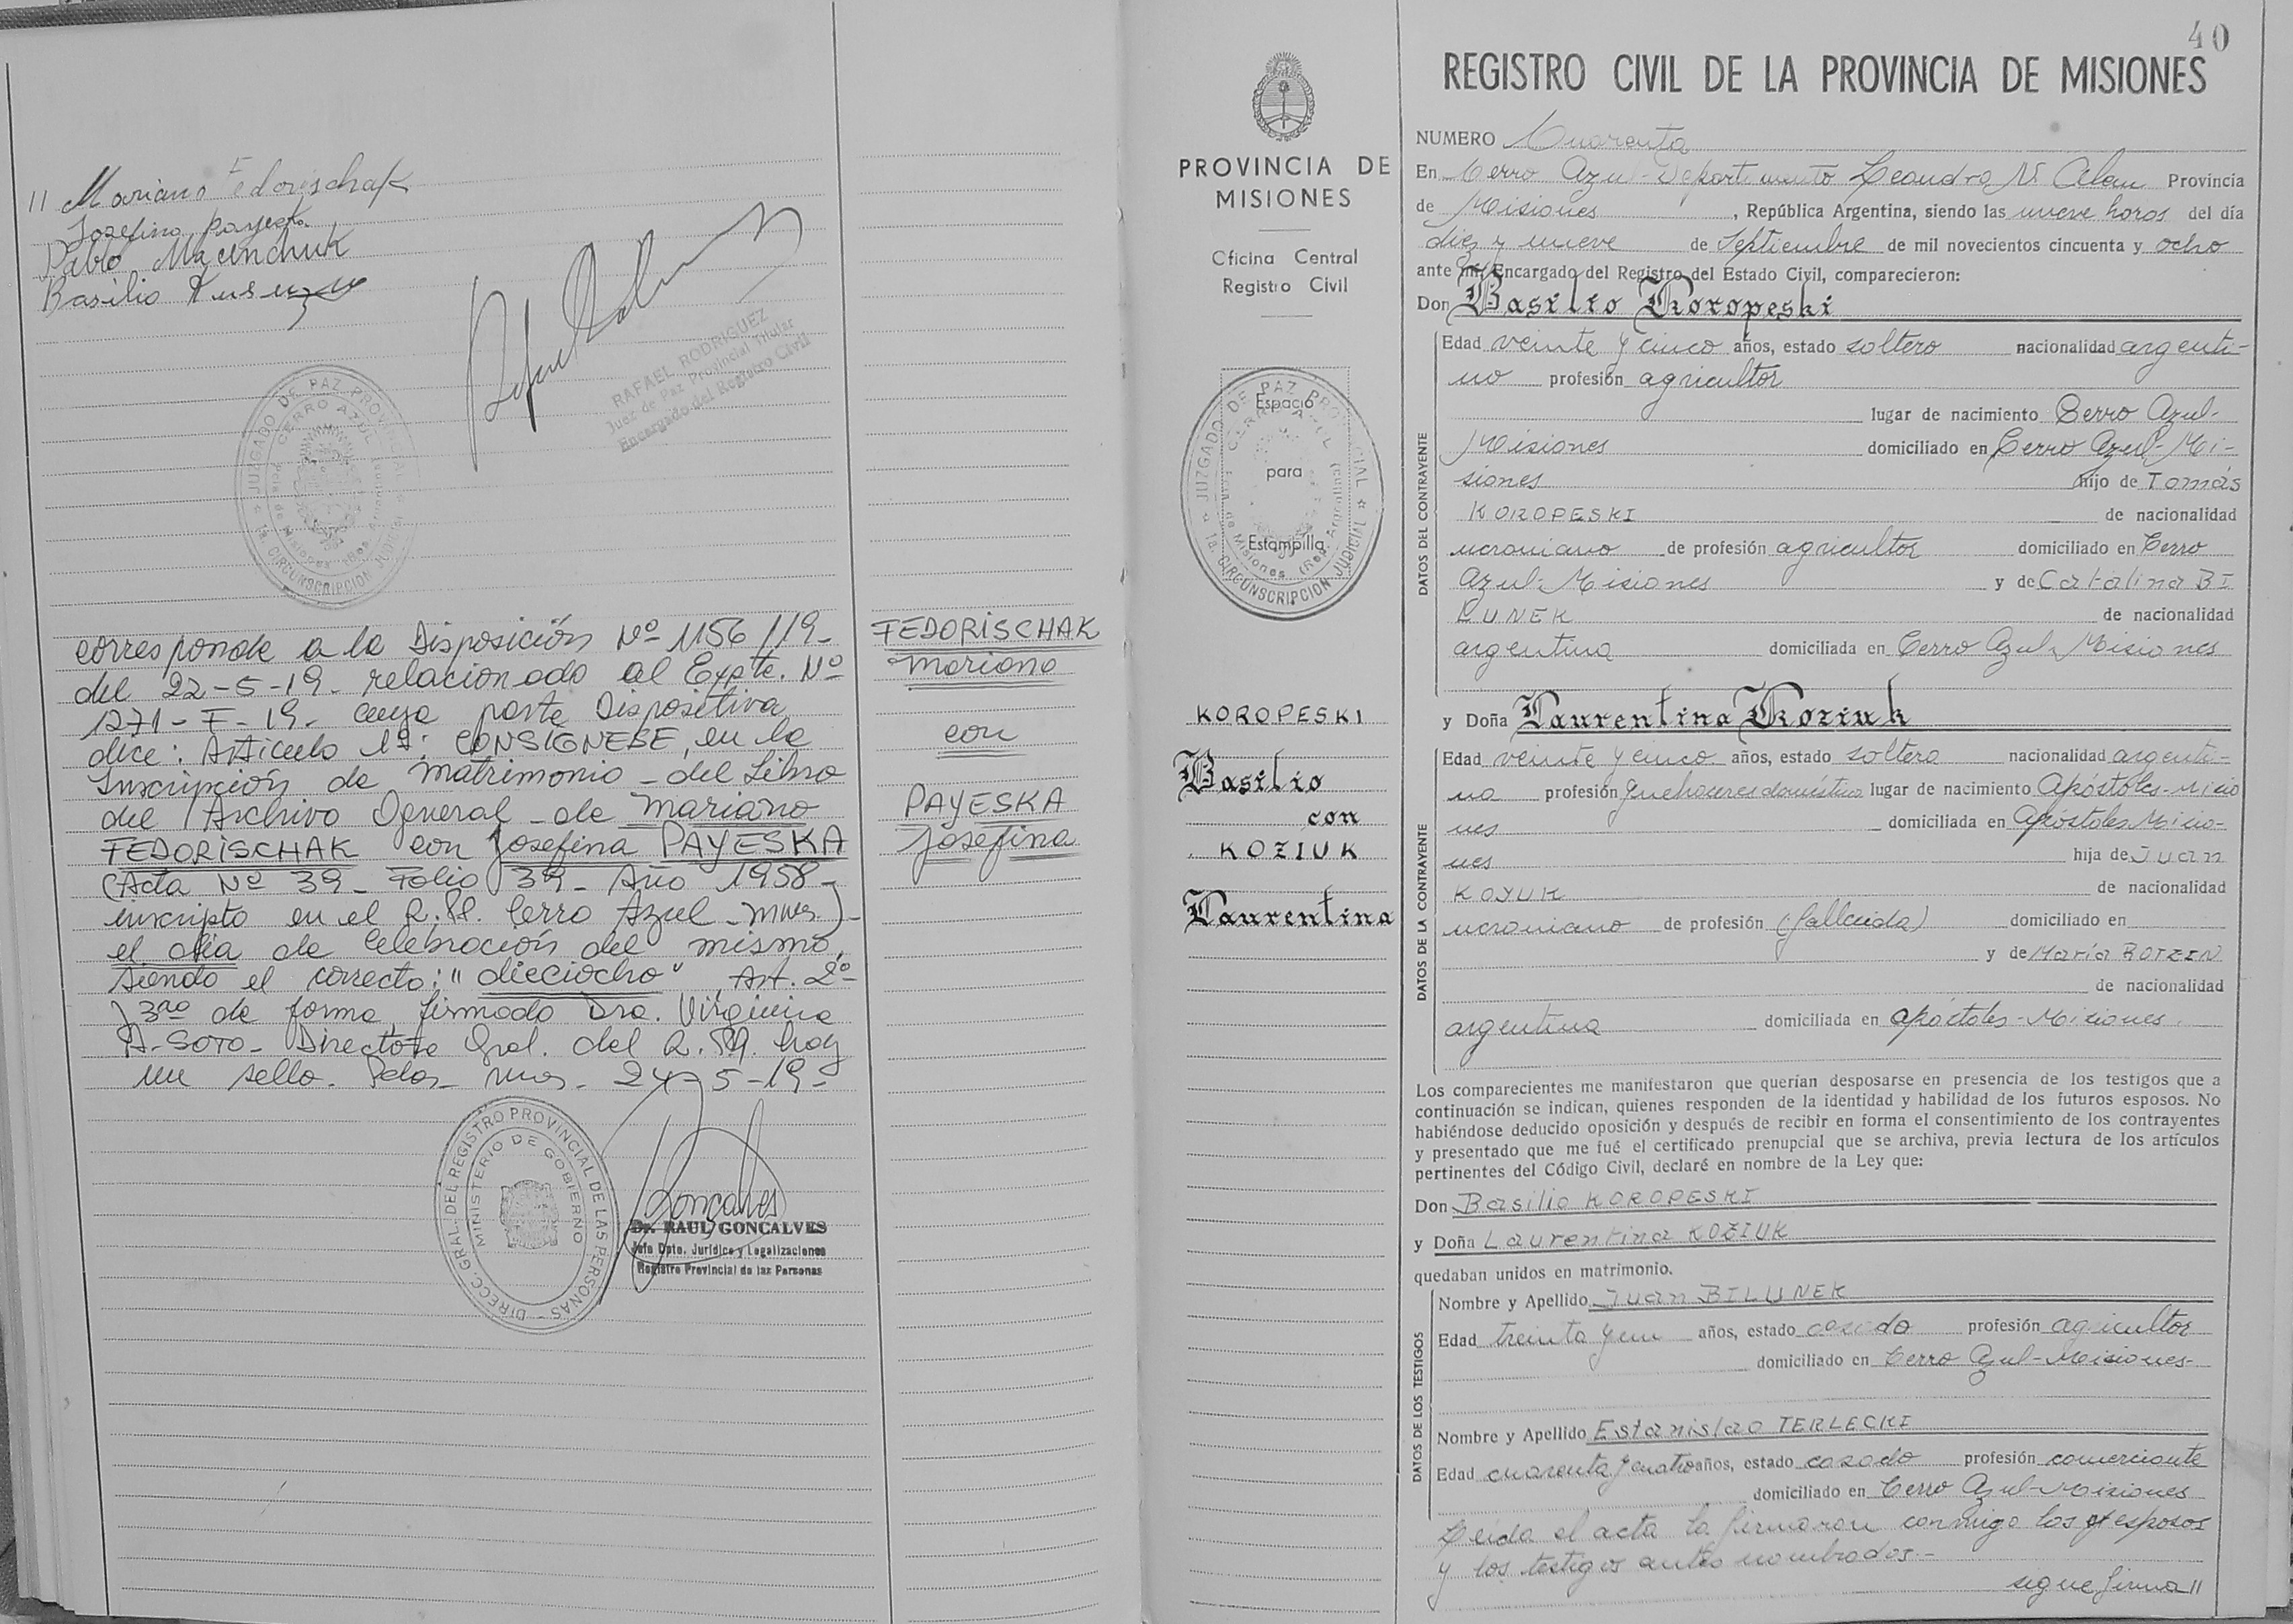 // Mariano Fedorischak
Josefina Payeska
Pablo
Basilio
RAFAEL RODRIGUEZ
Juez de Paz Provincial Titular
Encargado del Registro Civil
JUZGADO DE PAZ PROVINCIAL
CERRO AZUL
1a. CIRCUNSCRIPCION JUDICIAL
corresponde a la Disposición Nº 1156/19-
del 22-5-19- relacionado al Expte. Nº
1271-F-19- cuya parte Dispositiva
dice: Articulo 1º: CONSIGNESE, en la
Inscripción de matrimonio - del Libro
del Archivo General - de Mariano
FEDORISCHAK con Josefina PAYESKA
(Acta Nº 39- Folio 39- Año 1958-
inscripto en el R.P. Cerro Azul - Mnes)-
el día de Celebración del mismo,
siendo el correcto: "dieciocho", Art. 2º
y 3ro de forma, firmado Dra. Virginia
A. SOTO- Directora Gral. del R.P. hay
un sello. Pdas- Mnes- 24-5-19-
DIRECC. GRAL. DEL REGISTRO PROVINCIAL DE LAS PERSONAS
MINISTERIO DE GOBIERNO
Goncalves
Dr. RAUL GONCALVES
Jefe Dpto. Jurídico y Legalizaciones
Registro Provincial de las Personas
FEDORISCHAK
Mariano
con
PAYESKA
Josefina
PROVINCIA DE
MISIONES
Oficina Central
Registro Civil
JUZGADO DE PAZ PROVINCIAL
CERRO AZUL
1a. CIRCUNSCRIPCION JUDICIAL
Espacio
para
Estampilla
KOROPESKI
Basilio
con
KOZIUK
Laurentina
40
REGISTRO CIVIL DE LA PROVINCIA DE MISIONES
NUMERO Cuarenta
En Cerro Azul-Departamento Leandro N. Alem Provincia
de Misiones, República Argentina, siendo las nueve horas del día
diez y nueve de Septiembre de mil novecientos cincuenta y ocho
ante mí, Encargado del Registro del Estado Civil, comparecieron:
Don Basilio Koropeski
DATOS DEL CONTRAYENTE
Edad veinte y cinco años, estado soltero nacionalidad argenti-
no profesión agricultor
lugar de nacimiento Cerro Azul-
Misiones domiciliado en Cerro Azul-Mi-
siones hijo de Tomás
KOROPESKI de nacionalidad
ucraniano de profesión agricultor domiciliado en Cerro
Azul-Misiones y de Catalina BI
LUNEK de nacionalidad
argentina domiciliada en Cerro Azul-Misiones
y Doña Laurentina Koziuk
DATOS DE LA CONTRAYENTE
Edad veinte y cinco años, estado soltera nacionalidad argenti-
na profesión quehaceres domésticos lugar de nacimiento Apóstoles-Misio
nes domiciliada en Apóstoles Misio-
nes hija de Juan
KOYUK de nacionalidad
ucraniano de profesión (fallecido) domiciliado en
y de María BOTZIN
de nacionalidad
argentina domiciliada en apóstoles-Misiones.
Los comparecientes me manifestaron que querían desposarse en presencia de los testigos que a
continuación se indican, quienes responden de la identidad y habilidad de los futuros esposos. No
habiéndose deducido oposición y después de recibir en forma el consentimiento de los contrayentes
y presentado que me fué el certificado prenupcial que se archiva, previa lectura de los artículos
pertinentes del Código Civil, declaré en nombre de la Ley que:
Don Basilio KOROPESKI
y Doña Laurentina KOZIUK
quedaban unidos en matrimonio.
DATOS DE LOS TESTIGOS
Nombre y Apellido Juan BILUNEK
Edad treinta y un años, estado casado profesión agricultor
domiciliado en Cerro Azul-Misiones-
Nombre y Apellido Estanislao TERLECKI
Edad cuarenta y cuatro años, estado casado profesión comerciante
domiciliado en Cerro Azul-Misiones
Leida el acta la firmaron conmigo los esposos
y los testigos antes nombrados.-
sigue firma//